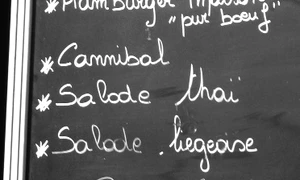 * Hamburger maison
"pur boeuf"
* Cannibal
* Salade thaï
* Salade liégeoise